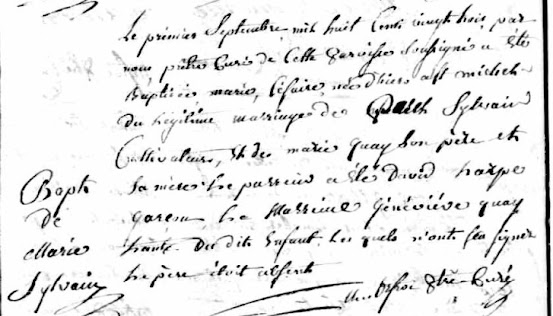 Le premier Septembre mil huit Cent vingt trois par
nous prêtre Curé de Cette paroisse Soussigné a été
Baptisée marie, Césaire née d'hier à St michel
Du légitime marriage de Sylvain
Cultivateur, Et de marie quay Son père et
Sa mère Le parrein a été David harpe
garcon La Marreine Généviève quay
tante Du dit Enfant. Les quels n'ont Su signer
Le père étoit absent
ptre Curé
Bapt
De
Marie
Sylvain